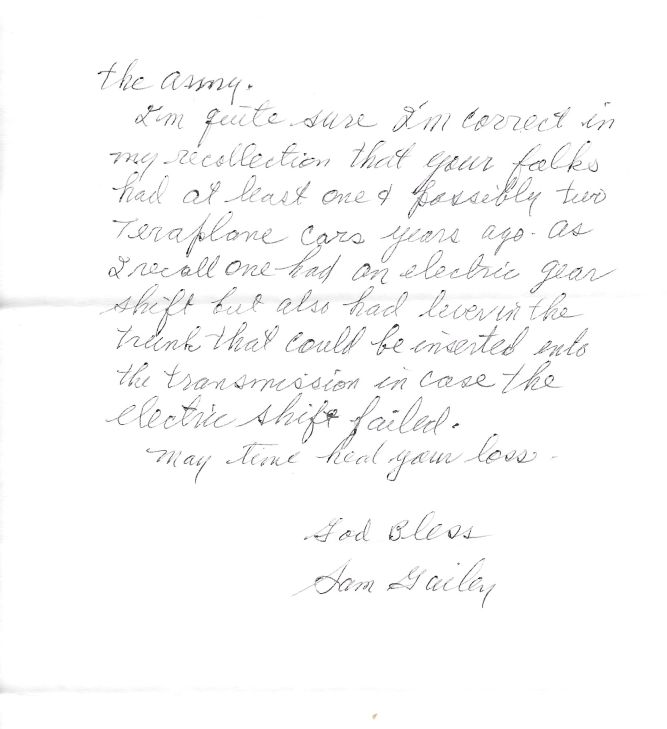 the Army.
I'm quite sure I'm correct in
my recollection that your folks
had at least one & possibly two
Teraplane cars years ago. As
I recall one had an electric gear
shift but also had lever in the
trunk that could be inserted into
the transmission in case the
electric shift failed.
May time heal your loss.
God Bless
Sam Gailey